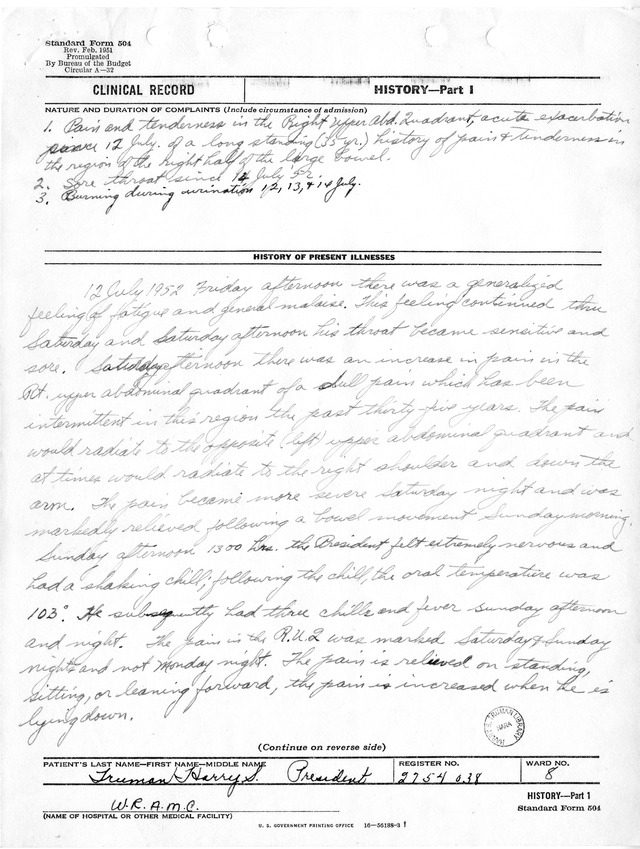 Standard Form 504
Rev. Feb. 1951
Promulgated
By Bureau of the Budget
Circular A—32
CLINICAL RECORD
HISTORY—Part 1
NATURE AND DURATION OF COMPLAINTS (Include circumstance of admission)
1. Pain and tenderness in the Right upper abd. Quadrant, acute exacerbation
since 12 July. of a long standing (35 yr.) history of pain & tenderness in
the region of the right half of the large bowel.
2. Sore throat since 14 July 52.
3. Burning during urination 12, 13, & 14 July.
HISTORY OF PRESENT ILLNESSES
12 July 1952 Friday afternoon there was a generalized
feeling of fatigue and general malaise. This feeling continued thru
Saturday and Saturday afternoon his throat became sensitive and
sore. Saturday afternoon there was an increase in pain in the
Rt. upper abdominal quadrant of a dull pain which has been
intermittent in this region the past thirty five years. The pain
would radiate to the opposite (left) upper abdominal quadrant and
at times would radiate to the right shoulder and down the
arm. The pain became more severe Saturday night and was
markedly relieved following a bowel movement Sunday morning.
Sunday afternoon 1300 hrs. the President felt extremely nervous and
had a shaking chill; following the chill, the oral temperature was
103°. He subsequently had three chills and fever Sunday afternoon
and night. The pain in the R.U.Q was marked Saturday & Sunday
nights and not Monday night. The pain is relieved on standing,
sitting, or leaning forward, the pain is increased when he is
lying down.
HARRY S. TRUMAN LIBRARY
NARA
(Continue on reverse side)
PATIENT'S LAST NAME—FIRST NAME—MIDDLE NAME
REGISTER NO.
WARD NO.
Truman, Harry S. President
2754 038
8
W.R.A.M.C.
HISTORY—Part 1
Standard Form 504
(NAME OF HOSPITAL OR OTHER MEDICAL FACILITY)
U. S. GOVERNMENT PRINTING OFFICE 16—56188-3